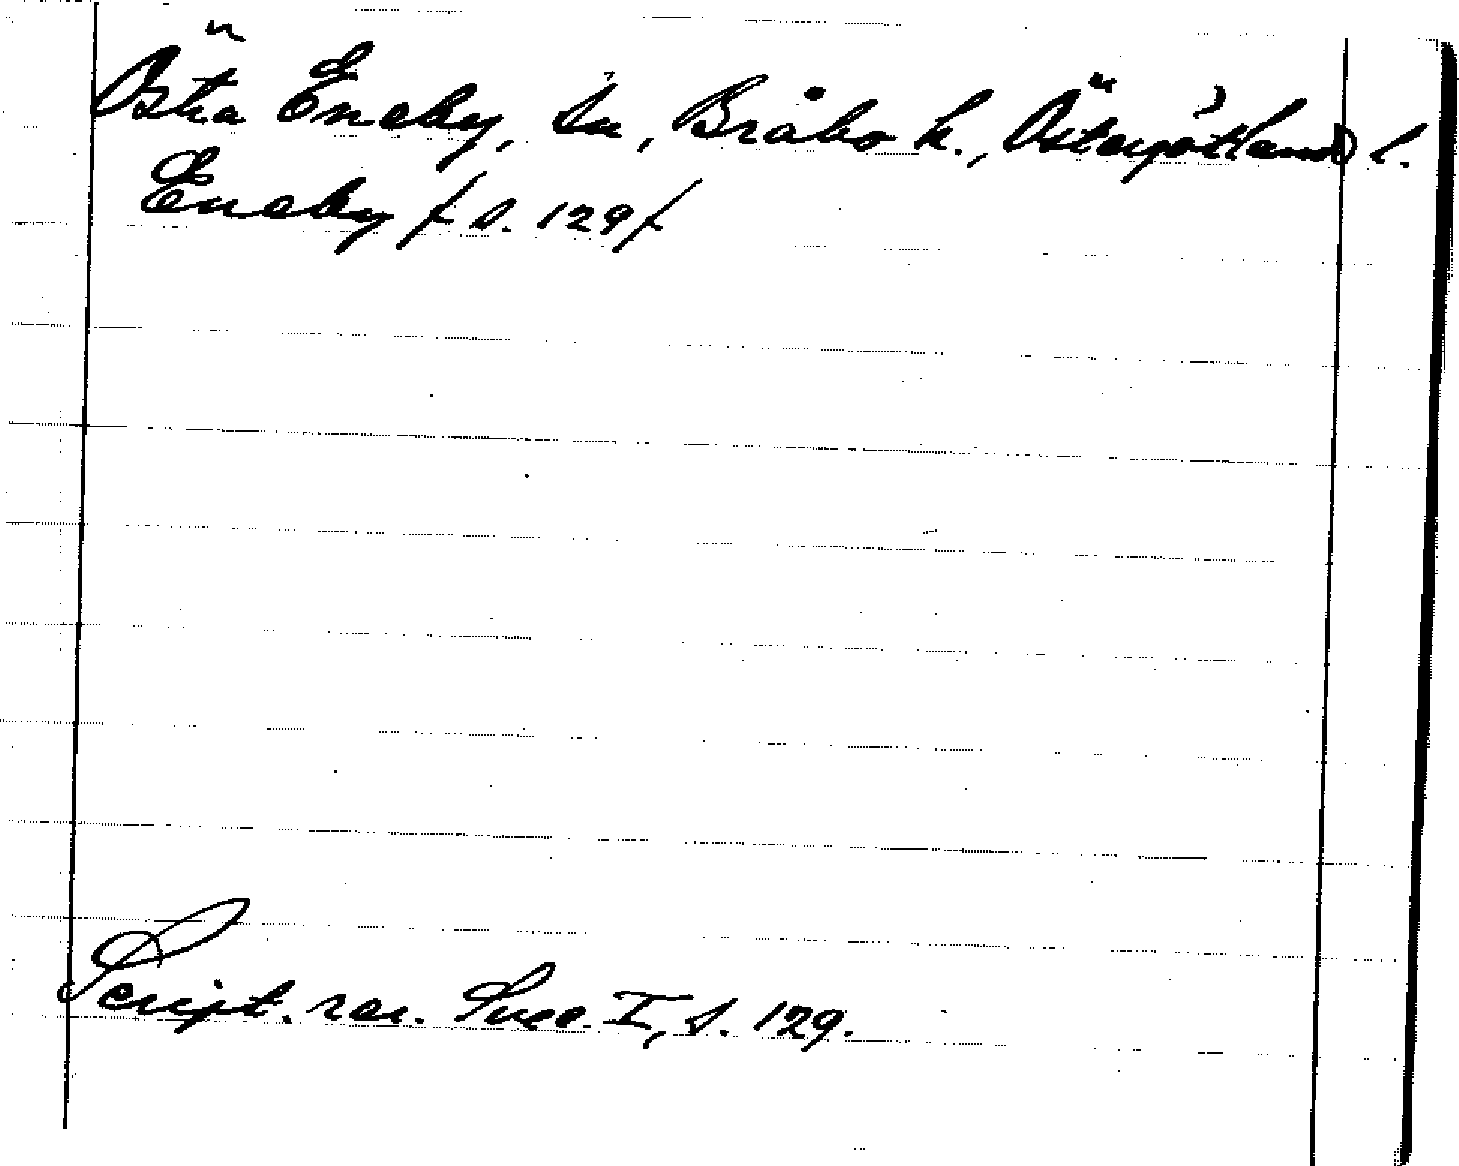 Östra Eneby, sn, Bråbo h., Östergötlands l.
Eneby /s. 129/
Script. rer. Svec. I, s. 129.